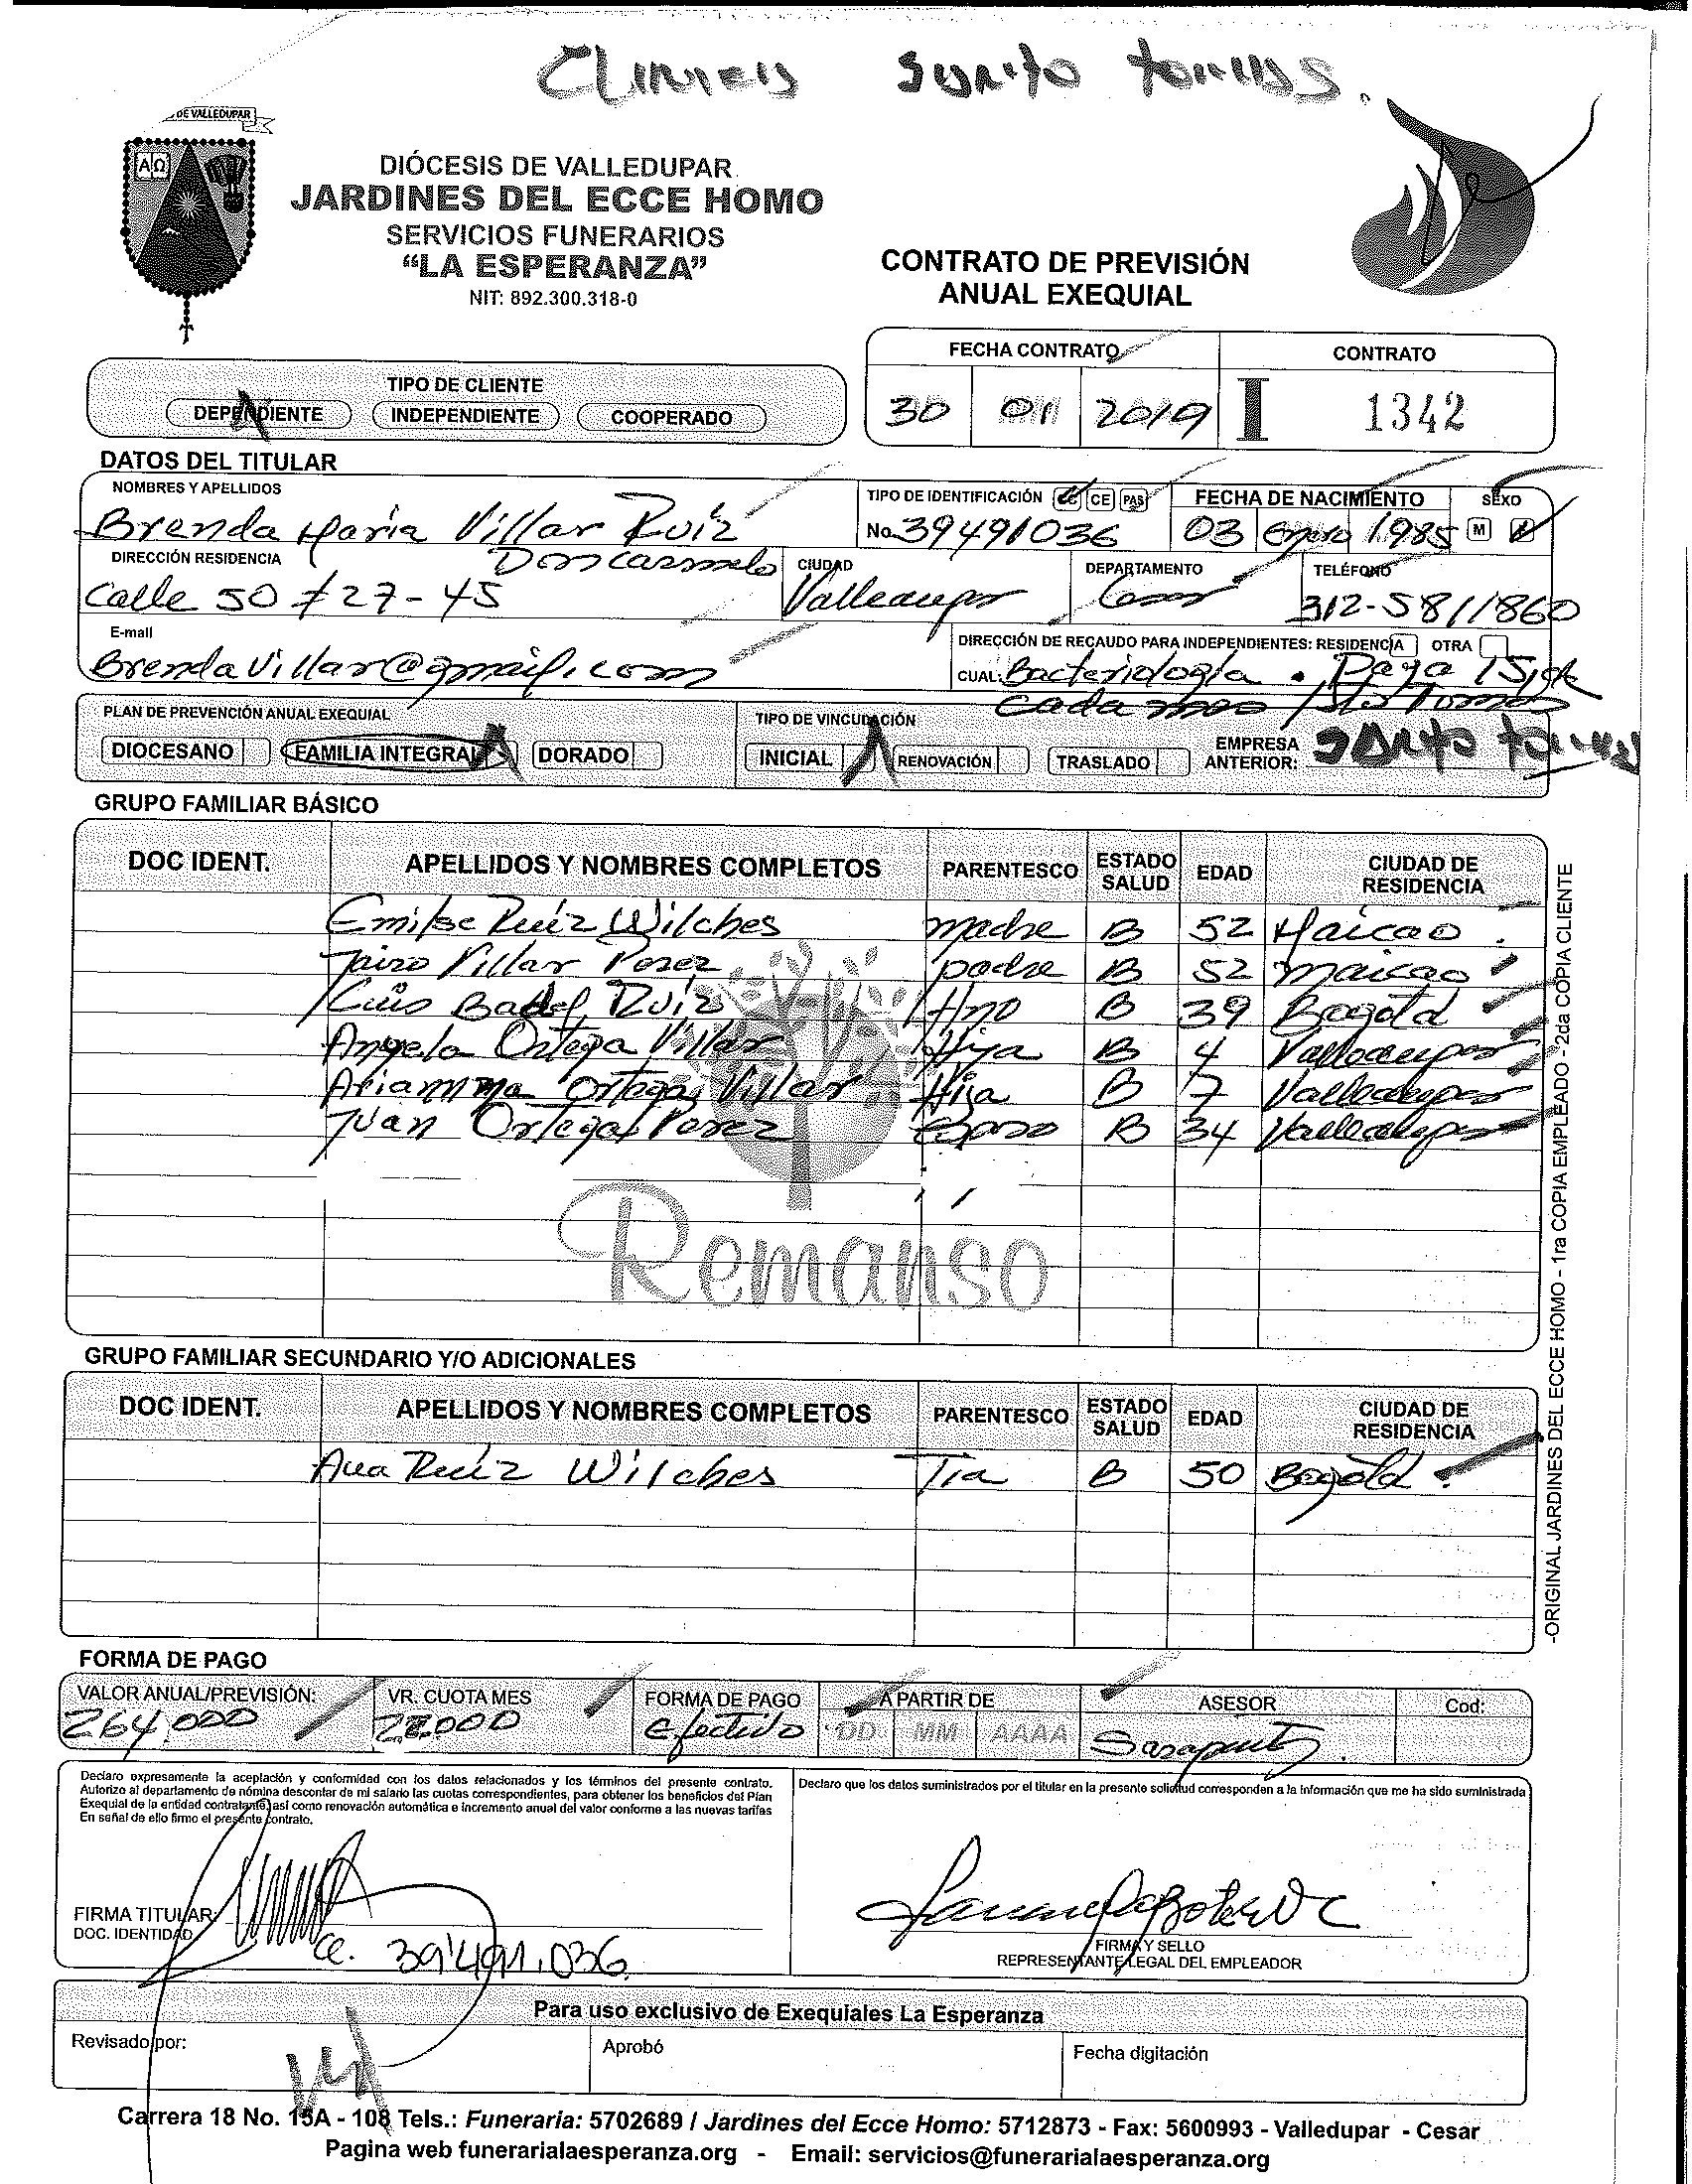 Clinica Santo Tomas.
DE VALLEDUPAR
A Ω
DIÓCESIS DE VALLEDUPAR
JARDINES DEL ECCE HOMO
SERVICIOS FUNERARIOS
“LA ESPERANZA”
NIT: 892.300.318-0
CONTRATO DE PREVISIÓN
ANUAL EXEQUIAL
FECHA CONTRATO CONTRATO
30 01 2019 I 1342
TIPO DE CLIENTE
DEPENDIENTE INDEPENDIENTE COOPERADO
DATOS DEL TITULAR
NOMBRES Y APELLIDOS TIPO DE IDENTIFICACIÓN CC CE PAS FECHA DE NACIMIENTO SEXO
Brenda Maria Villar Ruiz No. 39491036 03 Enero 1985 M
DIRECCIÓN RESIDENCIA Doncarmelo CIUDAD DEPARTAMENTO TELÉFONO
Calle 50 # 27-45 Valledupar Cesar 312-5811860
E-mail DIRECCIÓN DE RECAUDO PARA INDEPENDIENTES: RESIDENCIA OTRA
BrendaVillar@gmail.com CUAL: Bacteriologia. Paga 15
cada mes Sto Tomas
PLAN DE PREVENCIÓN ANUAL EXEQUIAL TIPO DE VINCULACIÓN
DIOCESANO FAMILIA INTEGRAL DORADO INICIAL RENOVACIÓN TRASLADO EMPRESA ANTERIOR: Santo Tomas
GRUPO FAMILIAR BÁSICO
DOC IDENT. APELLIDOS Y NOMBRES COMPLETOS PARENTESCO ESTADO SALUD EDAD CIUDAD DE RESIDENCIA
Emilse Ruiz Wilches madre B 52 Maicao
Jairo Villar Perez padre B 52 maicao
Luis Badel Ruiz Hno B 39 Bogotá
Angela Ortega Villar Hija B 4 Valledupar
Arianna Ortega Villar Hija B 7 Valledupar
Juan Ortega Perez Esposo B 34 Valledupar
Remanso
GRUPO FAMILIAR SECUNDARIO Y/O ADICIONALES
DOC IDENT. APELLIDOS Y NOMBRES COMPLETOS PARENTESCO ESTADO SALUD EDAD CIUDAD DE RESIDENCIA
Ana Ruiz Wilches Tia B 50 Bogotá
-ORIGINAL JARDINES DEL ECCE HOMO - 1ra COPIA EMPLEADO - 2da COPIA CLIENTE
FORMA DE PAGO
VALOR ANUAL/PREVISIÓN: VR. CUOTA MES FORMA DE PAGO A PARTIR DE ASESOR Cod:
264,000 22.000 Efectivo DD MM AAAA
Declaro expresamente la aceptación y conformidad con los datos relacionados y los términos del presente contrato.
Autorizo al departamento de nómina descontar de mi salario las cuotas correspondientes, para obtener los beneficios del Plan
Exequial de la entidad contratante, así como renovación automática e incremento anual del valor conforme a las nuevas tarifas
En señal de ello firmo el presente contrato.
Declaro que los datos suministrados por el titular en la presente solicitud corresponden a la información que me ha sido suministrada
FIRMA TITULAR:
DOC. IDENTIDAD cc. 39'491.036
FIRMA Y SELLO
REPRESENTANTE LEGAL DEL EMPLEADOR
Para uso exclusivo de Exequiales La Esperanza
Revisado por: Aprobó Fecha digitación
Carrera 18 No. 15A - 108 Tels.: Funeraria: 5702689 / Jardines del Ecce Homo: 5712873 - Fax: 5600993 - Valledupar - Cesar
Pagina web funerarialaesperanza.org - Email: servicios@funerarialaesperanza.org